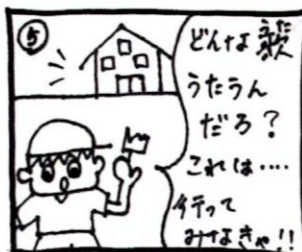 ⑤
どんな
うたうん
だろ？
これは‥‥
行って
みなきゃ!!